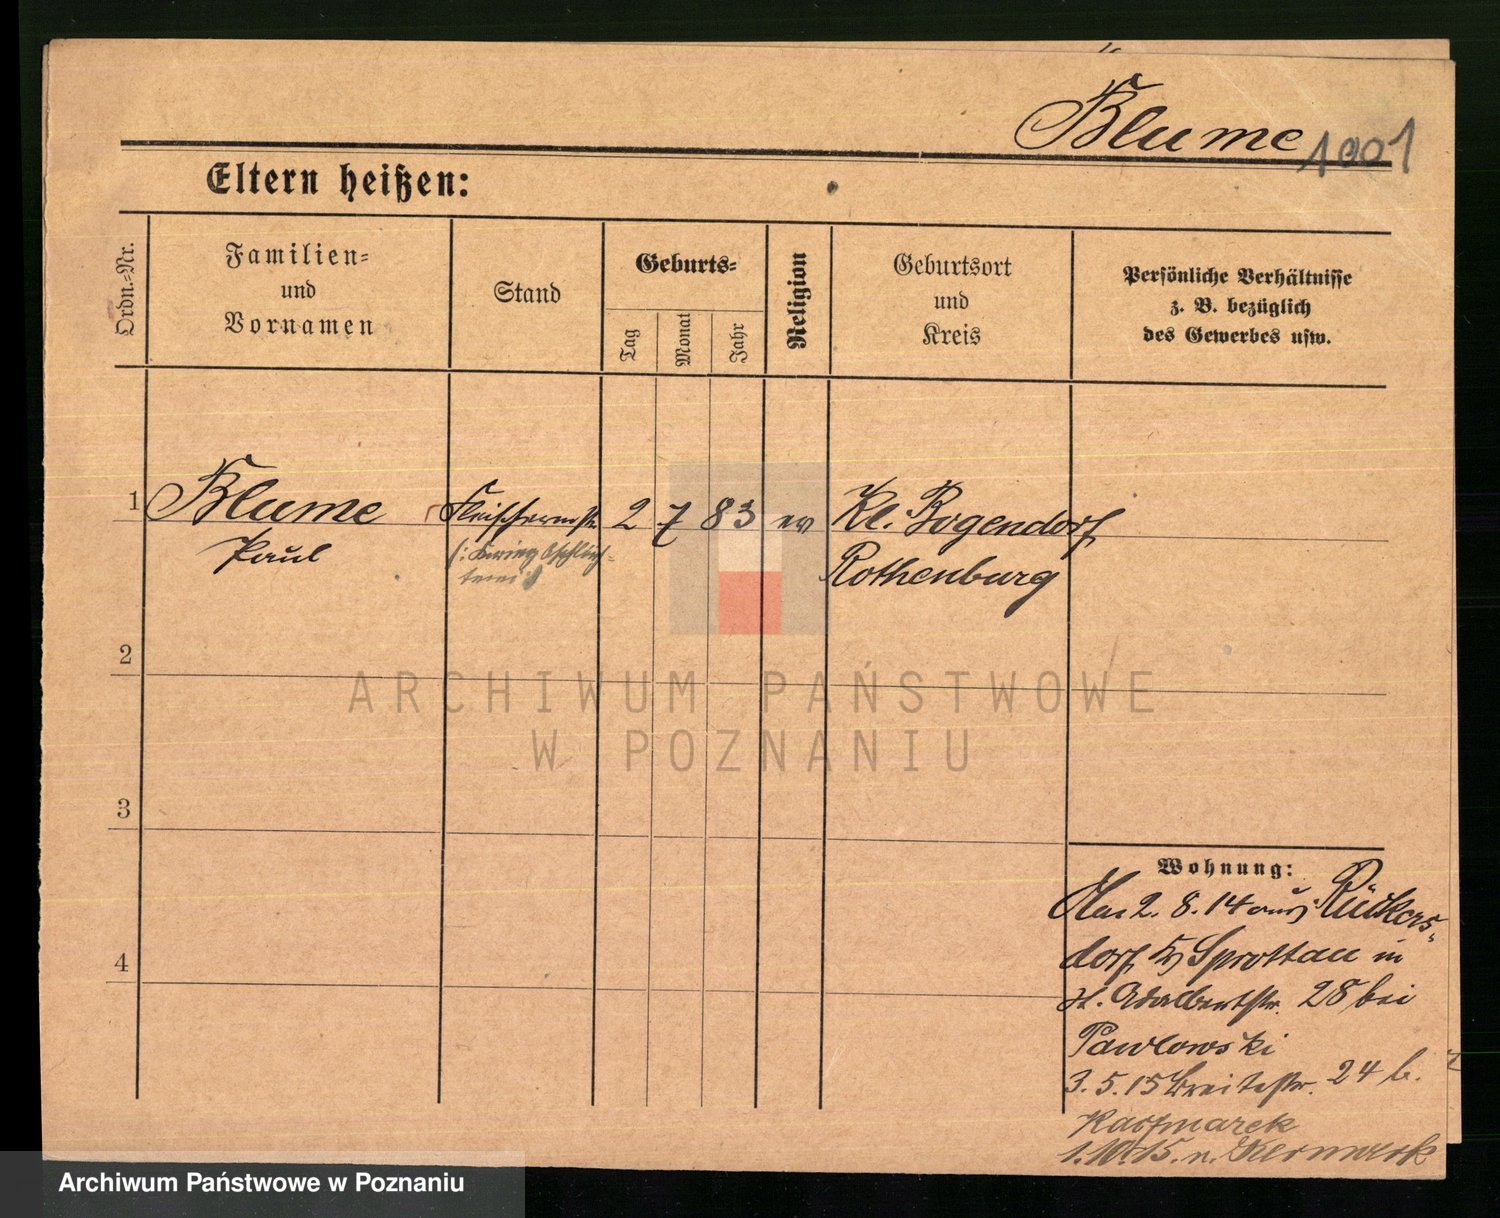 Blume 1001
Eltern heißen:
Ordn.-Nr.
Familien-
und
Vornamen
Stand
Geburts-
Tag
Monat
Jahr
Religion
Geburtsort
und
Kreis
Persönliche Verhältnisse
z. B. bezüglich
des Gewerbes usw.
1 Blume Fleischermstr. 2 7 83 ev Kl. Bogendorf
Paul Rothenburg
2
3
4
ARCHIWUM PAŃSTWOWE
W POZNANIU
Wohnung:
2. 8. 14 aus Rückers-
dorf Sprottau in
St. Adalbertstr. 28 bei
Pawlowski
3. 5. 15 Breitestr. 24 b.
Kaczmarek
1. 10. 15. n.
Archiwum Państwowe w Poznaniu